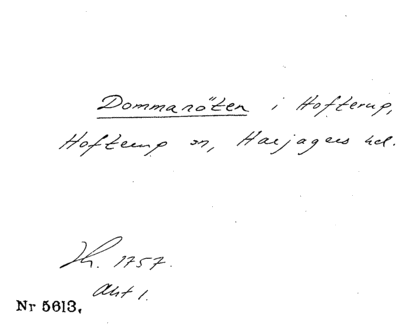 Dommanöten i Hofterup,
Hofterup sn, Harjagers hd.
Lh. 1757.
Akt 1.
Nr 5613.